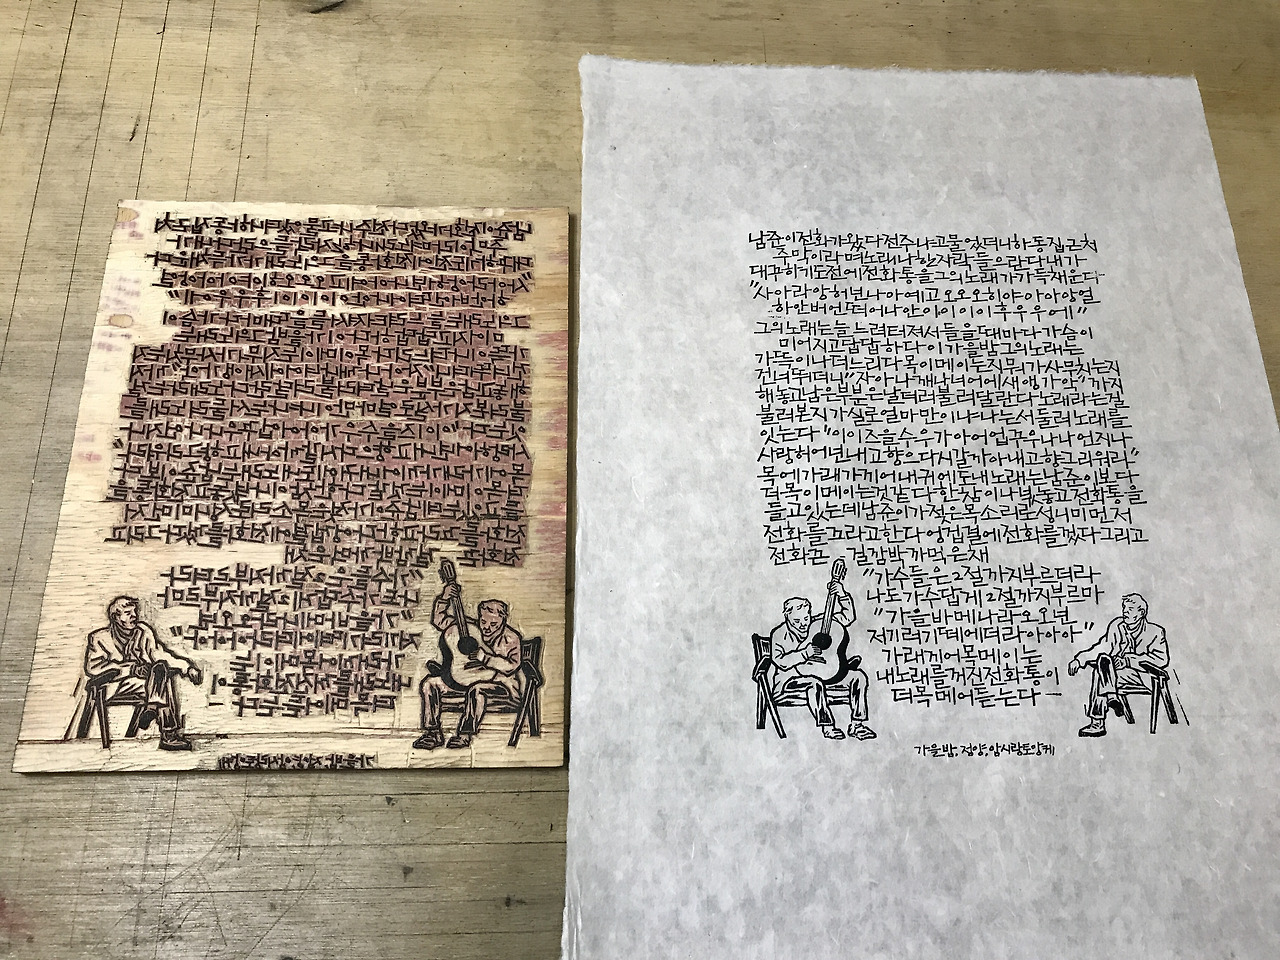 남쥰이전화가왔다전주냐고물었더니하동집근처
주막이라며노래나한자락들으란다내가
대꾸하기도전에전화통을그의노래가가득채운다
"사아라앙허년나아예고오오오히야아아앙얼
하안버언떠어나안아이이이후우우에"
그의노래는늘느려터져서들을때마다가슴이
미어지고답답하다이가을밤그의노래는
가뜩이나더느리다목이메이는지뭐가사무치는지
건너뛰더니"잠아나깨남녀어에새앵가악"까지
해놓고남은부분은날더러불러달란다노래라는걸
불러본지가실로얼마만이냐나는서둘러노래를
잇는다"이이즈을수우가아어업꾸우나나언지나
사랑허어년내고향으다시갈까아내고향그리워라"
목에가래가끼어내귀에도내노래는남쥰이보다
더목이메이는것같다한참이나넋놓고전화통을
들고있는데남쥰이가젖은목소리로성니미먼저
전화를끄라고한다엉겁결에전화를껐다그리고
전화끈 걸깜박까먹은채
"가수들은2절까지부르더라
나도가수답게2절까지부르마
"가을바메나라오오년
저끼러기떼에더라아아아"
가래끼어목메이는
내노래를꺼진전화통이
더목메어듣는다
가을밤, 정양, 암시랑토앙케